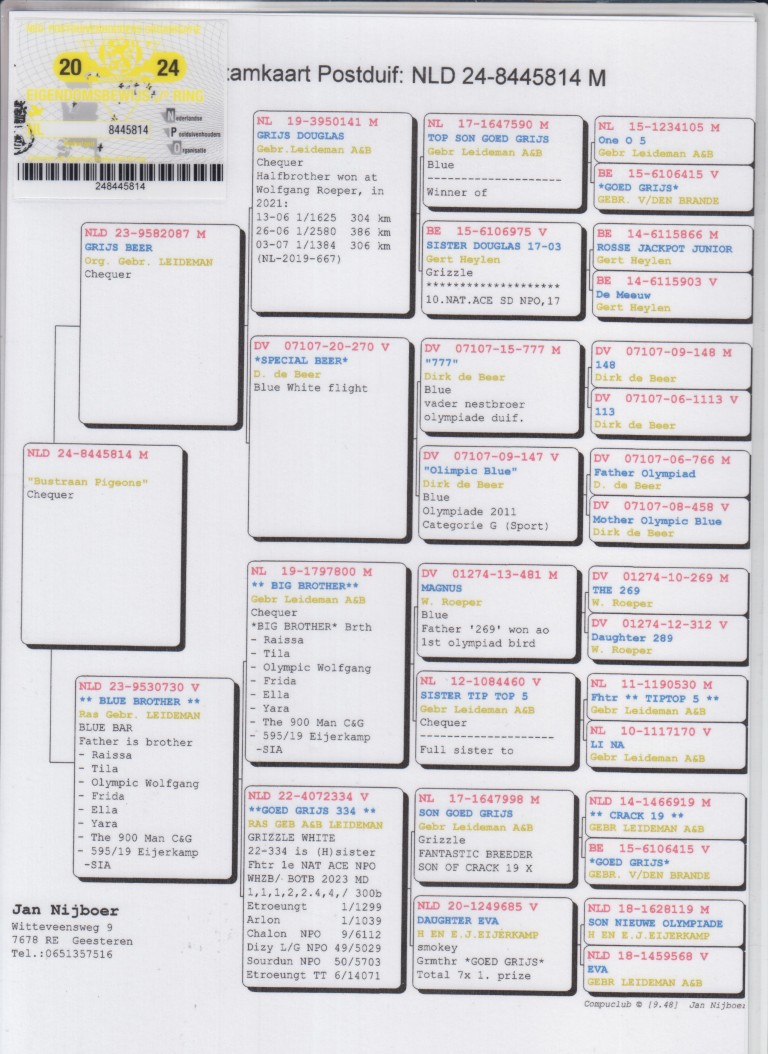 20 24
EIGENDOMSBEWIJS RING
Nederlandse
Postduivenhouders
Organisatie
8445814
248445814
tamkaart Postduif: NLD 24-8445814 M
NLD 24-8445814 M
"Bustraan Pigeons"
Chequer
NLD 23-9582087 M
GRIJS BEER
Org. Gebr. LEIDEMAN
Chequer
NLD 23-9530730 V
** BLUE BROTHER **
Ras Gebr. LEIDEMAN
BLUE BAR
Father is brother
- Raissa
- Tila
- Olympic Wolfgang
- Frida
- Ella
- Yara
- The 900 Man C&G
- 595/19 Eijerkamp
-SIA
NL 19-3950141 M
GRIJS DOUGLAS
Gebr.Leideman A&B
Chequer
Halfbrother won at
Wolfgang Roeper, in
2021:
13-06 1/1625 304 km
26-06 1/2580 386 km
03-07 1/1384 306 km
(NL-2019-667)
DV 07107-20-270 V
*SPECIAL BEER*
D. de Beer
Blue White flight
NL 19-1797800 M
** BIG BROTHER**
Gebr Leideman A&B
Chequer
*BIG BROTHER* Brth
- Raissa
- Tila
- Olympic Wolfgang
- Frida
- Ella
- Yara
- The 900 Man C&G
- 595/19 Eijerkamp
-SIA
NLD 22-4072334 V
**GOED GRIJS 334 **
RAS GEB A&B LEIDEMAN
GRIZZLE WHITE
22-334 is (H)sister
Fhtr 1e NAT ACE NPO
WHZB/ BOTB 2023 MD
1,1,1,2,2.4,4,/ 300b
Etroeungt 1/1299
Arlon 1/1039
Chalon NPO 9/6112
Dizy L/G NPO 49/5029
Sourdun NPO 50/5703
Etroeungt TT 6/14071
NL 17-1647590 M
TOP SON GOED GRIJS
Gebr Leideman A&B
Blue
--------------------
Winner of
BE 15-6106975 V
SISTER DOUGLAS 17-03
Gert Heylen
Grizzle
********************
10.NAT.ACE SD NPO,17
DV 07107-15-777 M
"777"
Dirk de Beer
Blue
vader nestbroer
olympiade duif.
DV 07107-09-147 V
"Olimpic Blue"
Dirk de Beer
Blue
Olympiade 2011
Categorie G (Sport)
DV 01274-13-481 M
MAGNUS
W. Roeper
Blue
Father '269' won ao
1st olympiad bird
NL 12-1084460 V
SISTER TIP TOP 5
Gebr Leideman A&B
Chequer
--------------------
Full sister to
NL 17-1647998 M
SON GOED GRIJS
Gebr Leideman A&B
Grizzle
FANTASTIC BREEDER
SON OF CRACK 19 X
NLD 20-1249685 V
DAUGHTER EVA
H EN E.J.EIJERKAMP
smokey
Grmthr *GOED GRIJS*
Total 7x 1. prize
NL 15-1234105 M
One O 5
Gebr Leideman A&B
BE 15-6106415 V
*GOED GRIJS*
GEBR. V/DEN BRANDE
BE 14-6115866 M
ROSSE JACKPOT JUNIOR
Gert Heylen
BE 14-6115903 V
De Meeuw
Gert Heylen
DV 07107-09-148 M
148
Dirk de Beer
DV 07107-06-1113 V
113
Dirk de Beer
DV 07107-06-766 M
Father Olympiad
D. de Beer
DV 07107-08-458 V
Mother Olympic Blue
Dirk de Beer
DV 01274-10-269 M
THE 269
W. Roeper
DV 01274-12-312 V
Daughter 289
W. Roeper
NL 11-1190530 M
Fhtr ** TIPTOP 5 **
Gebr Leideman A&B
NL 10-1117170 V
LI NA
Gebr Leideman A&B
NLD 14-1466919 M
** CRACK 19 **
GEBR LEIDEMAN A&B
BE 15-6106415 V
*GOED GRIJS*
GEBR. V/DEN BRANDE
NLD 18-1628119 M
SON NIEUWE OLYMPIADE
H EN E.J.EIJERKAMP
NLD 18-1459568 V
EVA
GEBR LEIDEMAN A&B
Jan Nijboer
Witteveensweg 9
7678 RE Geesteren
Tel.:0651357516
Compuclub © [9.48] Jan Nijboer